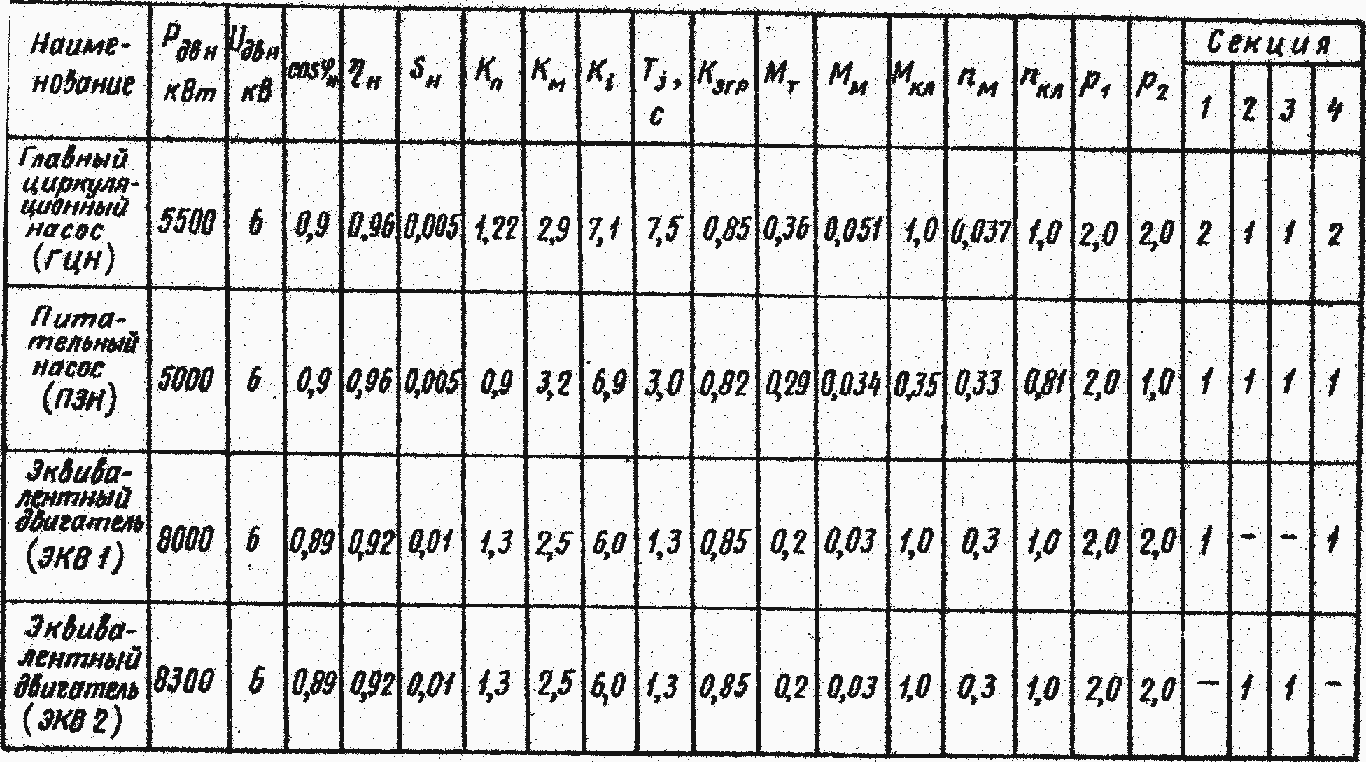 Наиме-нование Pдвн кВт Uдвн кВ cosφн ηн Sн Кп Км Кi Tj, с Кзгр Мт Мм Мкл nм nкл p1 p2 Секция 1 2 3 4
Главный циркуля-ционный насос (ГЦН) 5500 6 0,9 0,96 0,005 1,22 2,9 7,1 7,5 0,85 0,36 0,051 1,0 0,037 1,0 2,0 2,0 2 1 1 2
Пита-тельный насос (ПЭН) 5000 6 0,9 0,96 0,005 0,9 3,2 6,9 3,0 0,82 0,29 0,034 0,35 0,33 0,81 2,0 1,0 1 1 1 1
Эквива-лентный двигатель (ЭКВ 1) 8000 6 0,89 0,92 0,01 1,3 2,5 6,0 1,3 0,85 0,2 0,03 1,0 0,3 1,0 2,0 2,0 1 - - 1
Эквива-лентный двигатель (ЭКВ 2) 8300 6 0,89 0,92 0,01 1,3 2,5 6,0 1,3 0,85 0,2 0,03 1,0 0,3 1,0 2,0 2,0 - 1 1 -